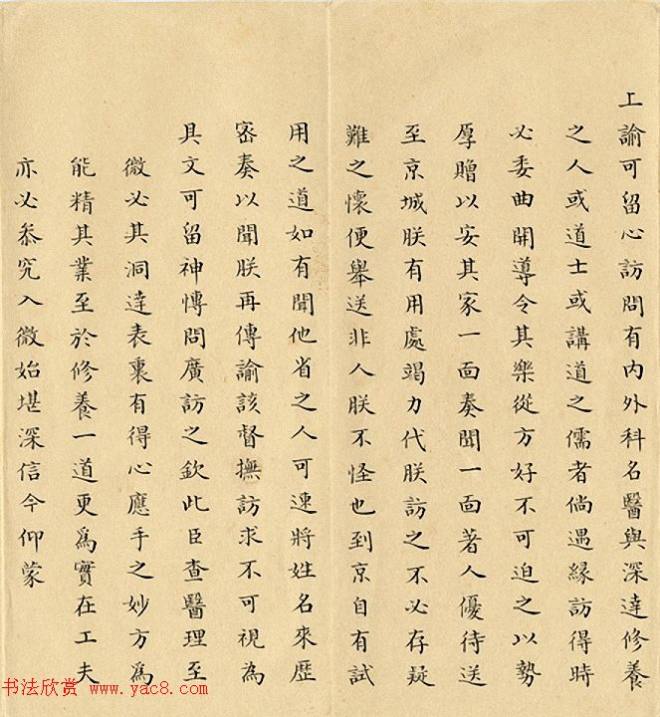 上諭可留心訪問有內外科名醫與深達修養
之人或道士或講道之儒者倘遇緣訪得時
必委曲開導令其樂從方好不可迫之以勢
厚贈以安其家一面奏聞一面著人優待送
至京城朕有用處竭力代朕訪之不必存疑
難之懷便舉送非人朕不怪也到京自有試
用之道如有聞他省之人可速將姓名來歷
密奏以聞朕再傳諭該督撫訪求不可視為
具文可留神慱問廣訪之欽此臣查醫理至
微必其洞達表裏有得心應手之妙方為
能精其業至於修養一道更爲實在工夫
亦必叅究入微始堪深信今仰蒙
书法欣赏 www.yac8.com